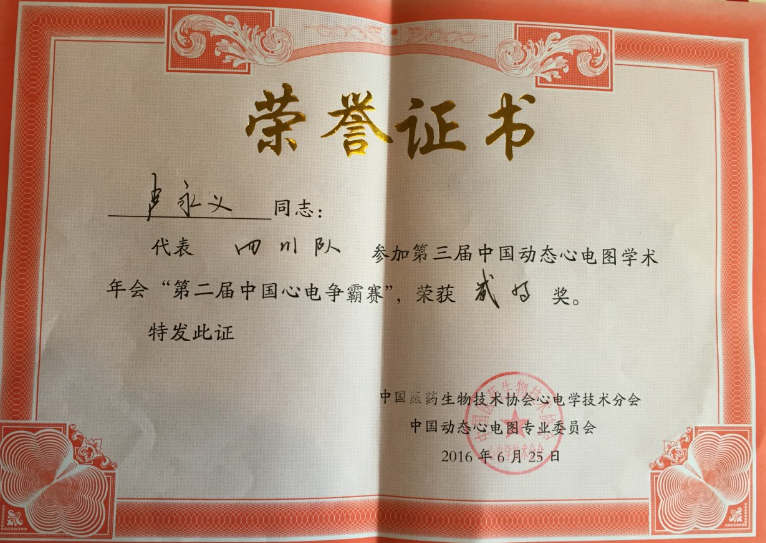 荣誉证书
卢永义同志：
代表 四川队 参加第三届中国动态心电图学术
年会“第二届中国心电争霸赛”，荣获 贰等 奖。
特发此证
中国医药生物技术协会心电学技术分会
中国动态心电图专业委员会
2016年6月25日